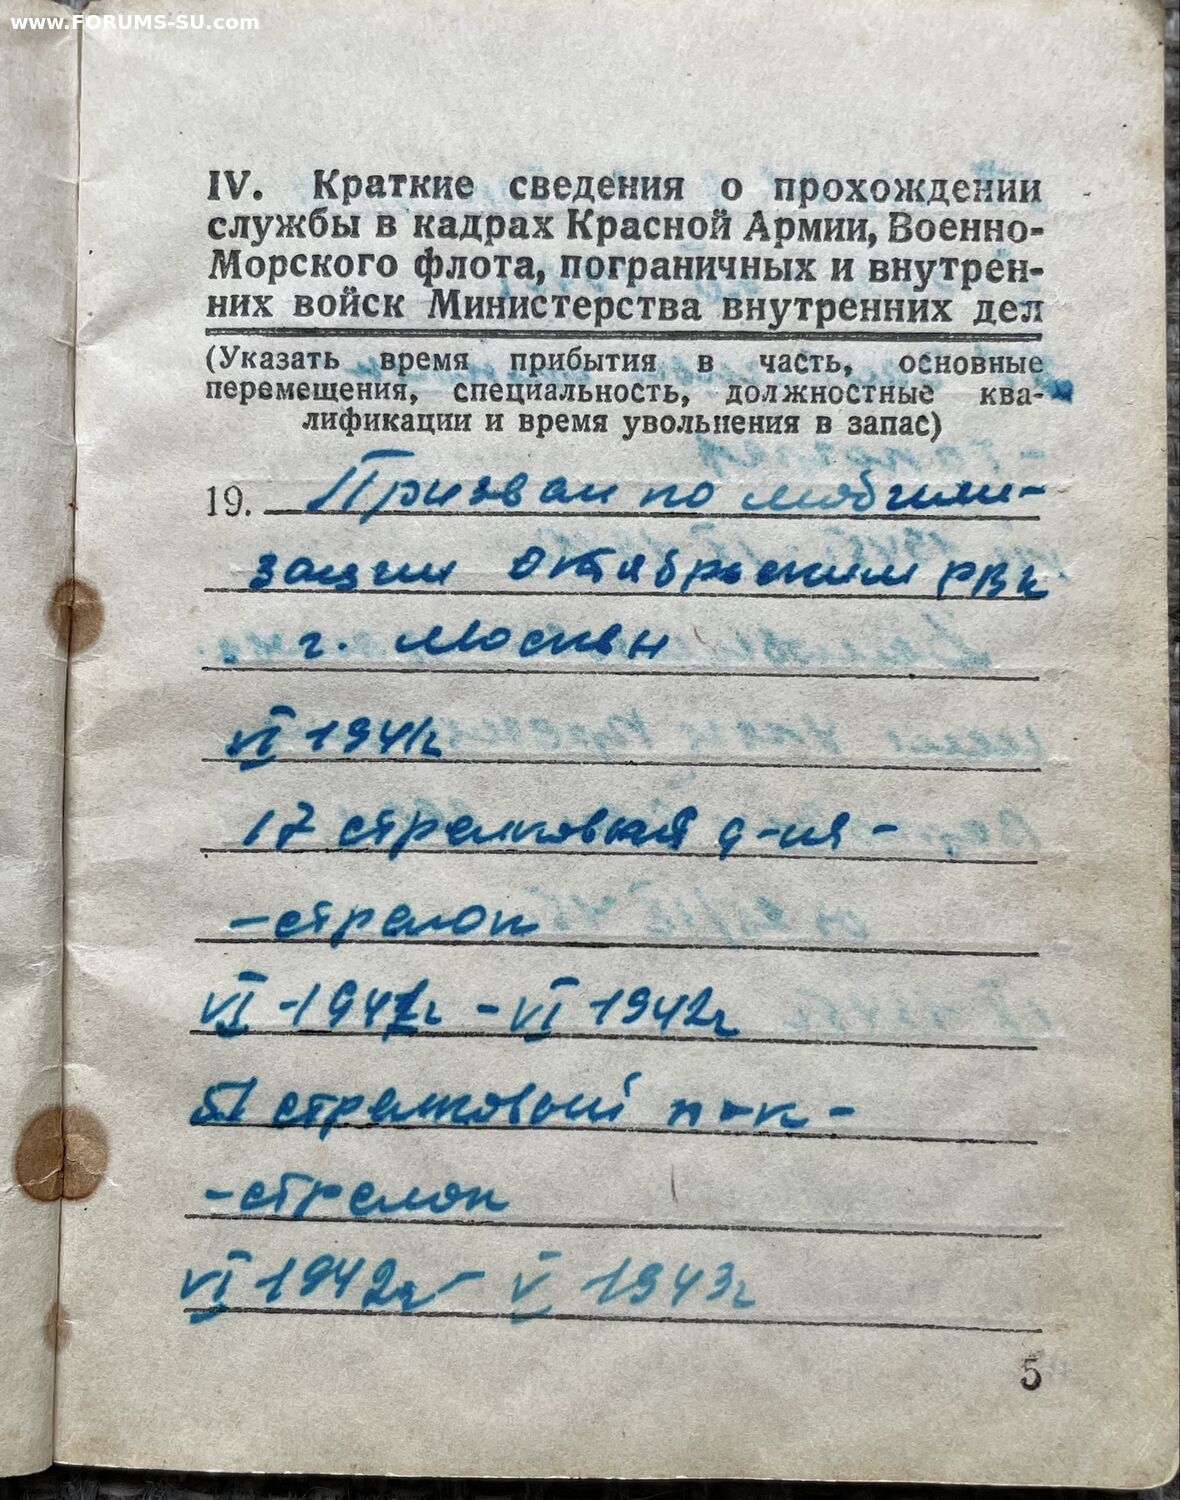 www.FORUMS-SU.com
IV. Краткие сведения о прохождении
службы в кадрах Красной Армии, Военно-
Морского флота, пограничных и внутрен-
них войск Министерства внутренних дел
(Указать время прибытия в часть, основные
перемещения, специальность, должностные ква-
лификации и время увольнения в запас)
19. Призван по мобили-
зации Октябрьским РВК
г. Москвы
VI 1941г
17 стрелковая д-ия -
- стрелок
VI - 1941г - VI 1942г
51 стрелковый п-к -
- стрелок
VI 1942г - V 1943г
5